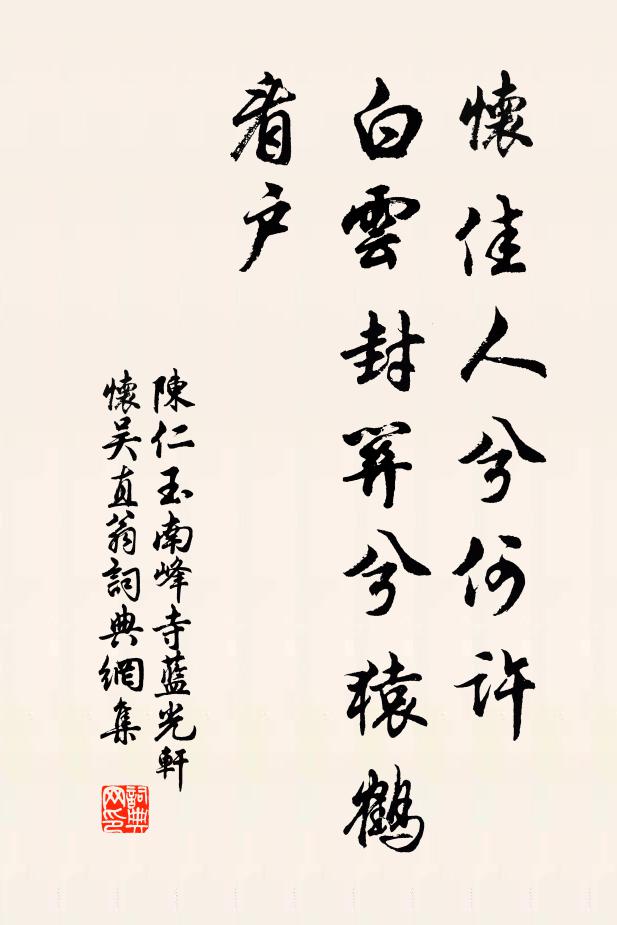 懷佳人兮何許
白雲封關兮猿鶴
看戶
陳仁玉南峰寺藍光軒
懷吳直翁詞典網集
詞典
网印